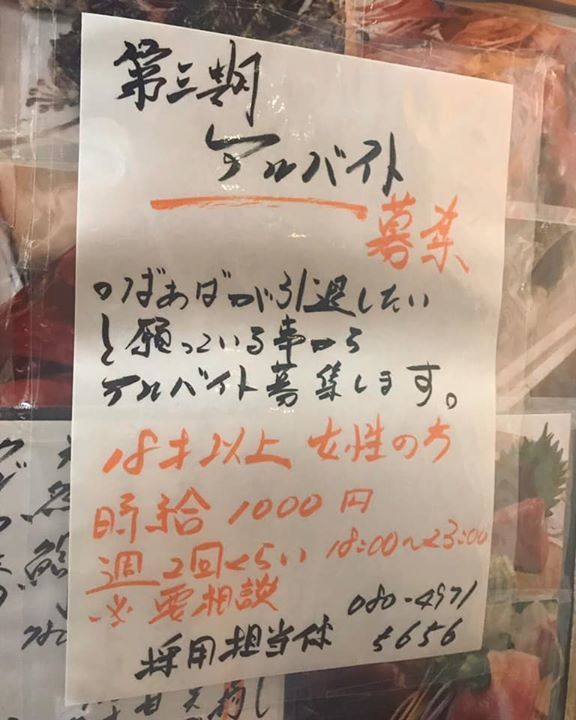 第三期
アルバイト
募集
のばあばが引退したい
と願っている事から
アルバイト募集します。
18才以上 女性のち
時給 1000円
週2回くらい 18:00〜23:00
※要相談
080-4971
5656
採用担当